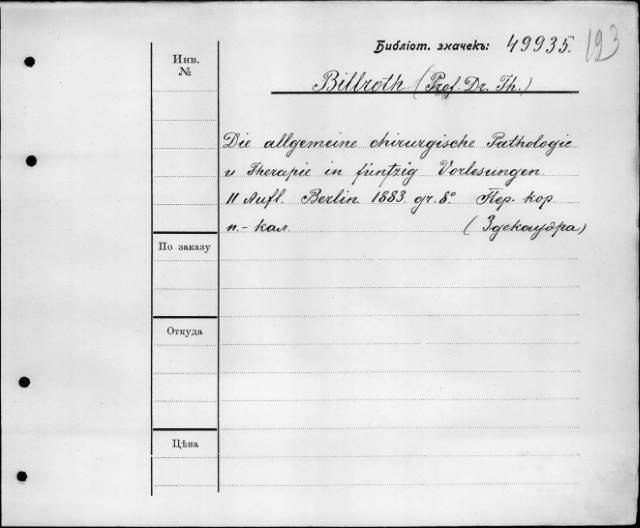 Библіот. значекъ: 49935. 193
Инв.
№
Billroth (Prof. Dr. Th.)
Die allgemeine chirurgische Pathologie
u Therapie in fünfzig Vorlesungen.
11 Aufl. Berlin. 1883. gr. 8°. Пер. кор
п.-кал. (Здекауэра)
По заказу
Откуда
Цѣна